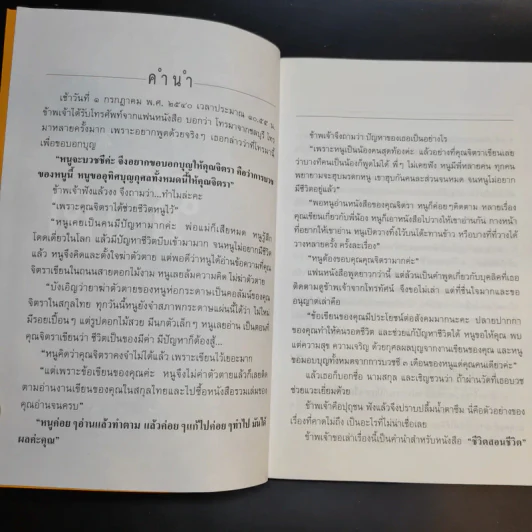 คำนำ
เช้าวันที่ ๑ กรกฎาคม พ.ศ. ๒๕๔๐ เวลาประมาณ ๑๐.๕๕ น.
ข้าพเจ้าได้รับโทรศัพท์จากแฟนหนังสือ บอกว่า โทรมาจากชลบุรี โทร
มาหลายครั้งมาก เพราะอยากพูดด้วยจริงๆ เธอกล่าวว่าที่โทรมานี้
เพื่อขอบอกบุญ
"หนูจะบวชชีค่ะ จึงอยากขอบอกบุญให้คุณจิตรา คือว่าการบวช
ของหนูนี้ หนูขออุทิศบุญกุศลทั้งหมดนี้ให้คุณจิตรา"
ข้าพเจ้าฟังแล้วงง จึงถามว่า...ทำไมล่ะคะ
"เพราะคุณจิตราได้ช่วยชีวิตหนูไว้"
"หนูเคยเป็นคนมีปัญหามากค่ะ พ่อแม่ก็เสียหมด หนูรู้สึก
โดดเดี่ยวในโลก แล้วมีปัญหาชีวิตบีบเข้ามามาก จนหนูไม่อยากมีชีวิต
แล้ว หนูจึงคิดและตั้งใจฆ่าตัวตาย แต่พอดีว่าหนูได้อ่านข้อความที่คุณ
จิตราเขียนในถนนสายดอกไม้งาม หนูเลยล้มความคิด ไม่ฆ่าตัวตาย
"บังเอิญว่ายาฆ่าตัวตายของหนูห่อกระดาษเป็นคอลัมน์ของคุณ
จิตราในสกุลไทย ทุกวันนี้หนูยังจำสภาพกระดาษแผ่นนี้ได้ว่า ไม่ใหม่
มีรอยเปื้อนๆ แต่รูปดอกไม้สวย มีนกตัวเล็กๆ หนูเลยอ่าน เป็นตอนที่
คุณจิตราเขียนว่า ชีวิตเป็นของมีค่า มีปัญหาก็ต้องสู้...
"หนูคิดว่าคุณจิตราคงจำไม่ได้แล้ว เพราะเขียนไว้เยอะมาก
"แต่เพราะชื่อของคุณค่ะ หนูจึงไม่ฆ่าตัวตายแล้วก็เลยติด
ตามอ่านงานเขียนของคุณในสกุลไทยและไปซื้อหนังสือรวมเล่มของ
คุณอ่านจนครบ"
"หนูค่อยๆอ่านแล้วทำตาม แล้วค่อยๆแก้ไปค่อยๆทำไป มันได้
ผลค่ะคุณ"
ข้าพเจ้าจึงถามว่า ปัญหาของเธอเป็นอย่างไร
"เพราะหนูเป็นน้องคนสุดท้องค่ะ แล้วอย่างที่คุณจิตราเขียนเลย
ว่าบางทีคนเป็นน้องก็พูดไม่ได้ พี่ๆ ไม่เคยฟัง หนูมีพี่หลายคน ทุกคน
พยายามจะฮุบมรดกหนู เขาฮุบกันคนละส่วนจนหมด จนหนูไม่อยาก
มีชีวิตอยู่แล้ว"
"พอหนูอ่านหนังสือของคุณจิตรา หนูก็ค่อยๆคิดตาม หลายเรื่อง
คุณเขียนเกี่ยวกับพี่น้อง หนูก็เอาหนังสือไปวางให้เขาอ่านกัน กางหน้า
ที่อยากให้เขาอ่าน หนูเปิดวางทิ้งไว้บนโต๊ะทานข้าว หรือบางทีที่วางได้
วางหลายครั้ง ครั้งละเรื่อง"
"หนูต้องขอบคุณคุณจิตรามากค่ะ"
แฟนหนังสือพูดยาวกว่านี้ แต่ล้วนเป็นคำพูดเกี่ยวกับบุคคลิกที่เธอ
ติดตามดูข้าพเจ้าจากโทรทัศน์ จึงขอไม่เล่า แต่ที่ชื่นใจมากและขอ
อนุญาตเล่าคือ
"ข้อเขียนของคุณมีประโยชน์ต่อสังคมมากนะคะ ปลายปากกา
ของคุณทำให้คนรอดชีวิต และช่วยแก้ปัญหาชีวิตได้ หนูขอให้คุณ พบ
แต่ความสุข ความเจริญ ด้วยกุศลผลบุญจากงานเขียนของคุณ และหนู
ขอมอบบุญทั้งหมดจากการบวชชี ๓ เดือนของหนูแด่คุณคนเดียวค่ะ"
แล้วเธอก็บอกชื่อ นามสกุล และเชิญชวนว่า ถ้าผ่านวัดที่เธอบวช
ช่วยแวะเยี่ยมด้วย
ข้าพเจ้าคือปุถุชน ฟังแล้วจึงปราบปลื้มน้ำตาซึม นี่คือตัวอย่างของ
เรื่องที่คาดไม่ถึง เป็นอะไรที่ไม่น่าเชื่อเลย
ข้าพเจ้าขอเล่าเรื่องนี้เป็นคำนำสำหรับหนังสือ "ชีวิตสอนชีวิต"